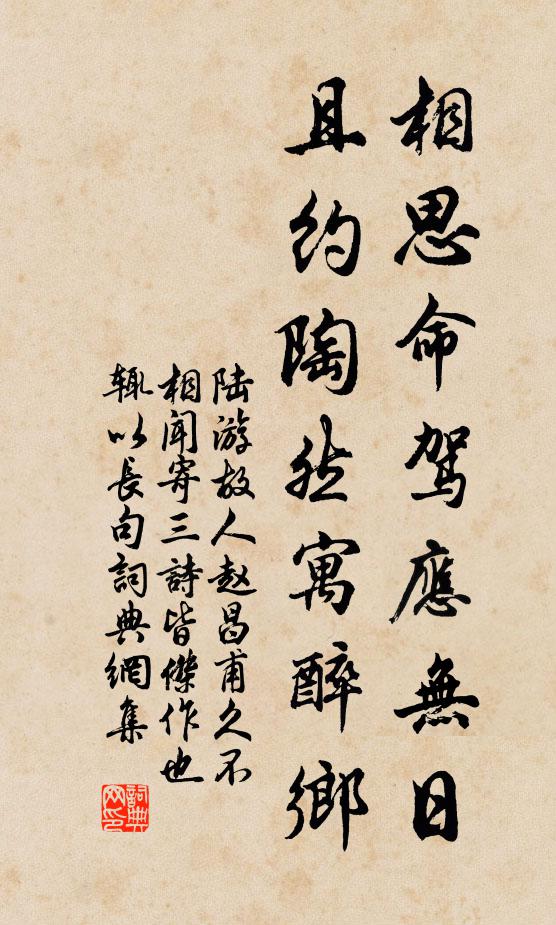 相思命駕應無日
且約陶然寓醉鄉
陆游故人赵昌甫久不
相闻寄三詩皆傑作也
辄以長句詞典網集
詞典网印